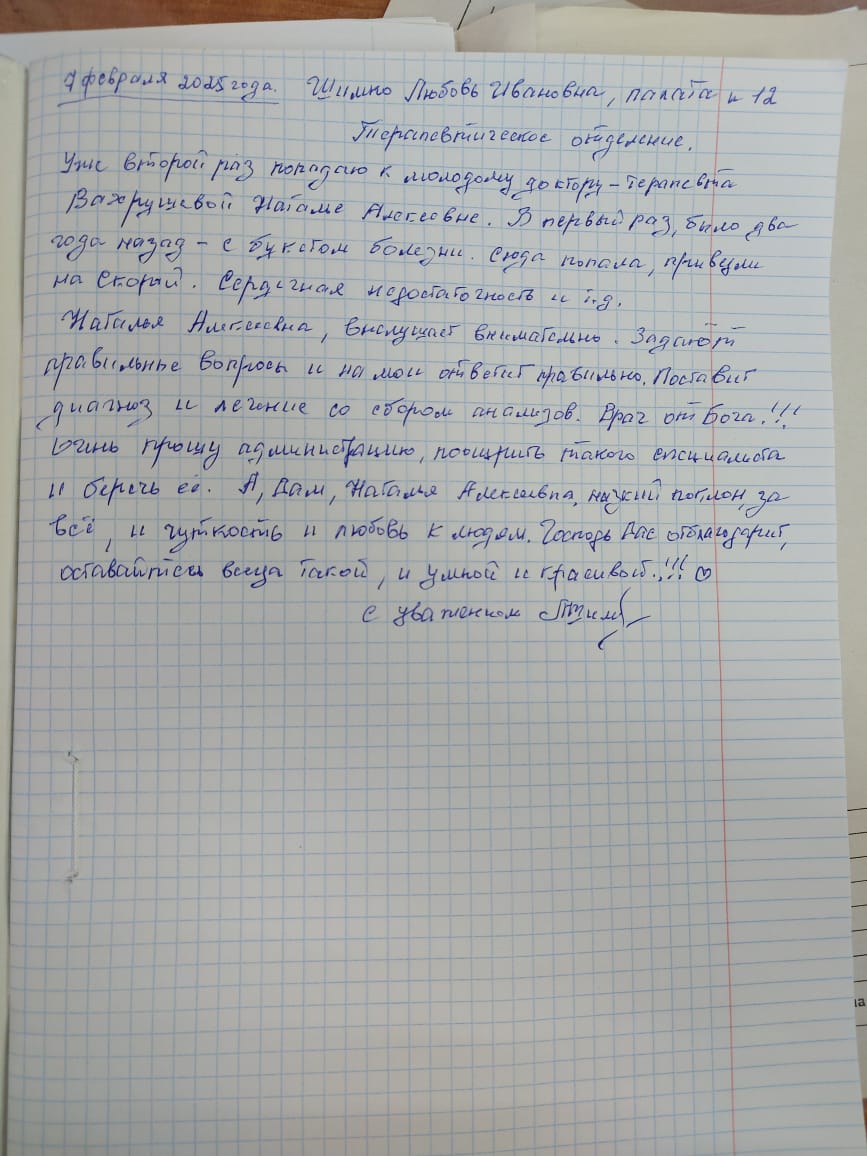 7 февраля 2025 года. Шимко Любовь Ивановна, палата н 12
Терапевтическое отделение.
Уже второй раз попадаю к молодому доктору - терапевта
Вахрушевой Наталье Алексеевне. В первый раз, было два
года назад - с букетом болезни. Сюда попала, привезли
на Скорай. Сердечная недостаточность и т.д.
Наталья Алексеевна, выслушает внимательно. Задают
правильные вопросы и на мои ответит правильно. Поставит
диагноз и лечение со сбором анализов. Врач от Бога.!!!
Очень прошу администрацию, поощрить такого специалиста
и беречь её. А, Вам, Наталья Алексеевна, низкий поклон, за
всё, и чуткость и любовь к людям. Господь Вас отблагодарит,
оставайтесь всегда такой, и умной и красивой.!!! ♡
с уважением